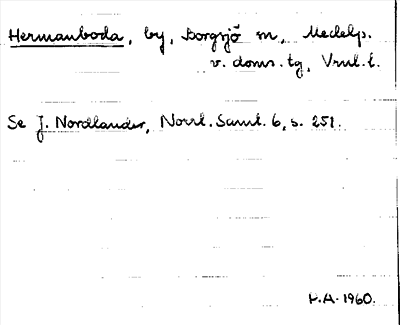 Hermanboda, by, Borgsjö sn, Medelp.
v. doms. tg, Vnl. l.
Se J. Nordlander, Norrl. Saml. 6, s. 251.
P.A. 1960.